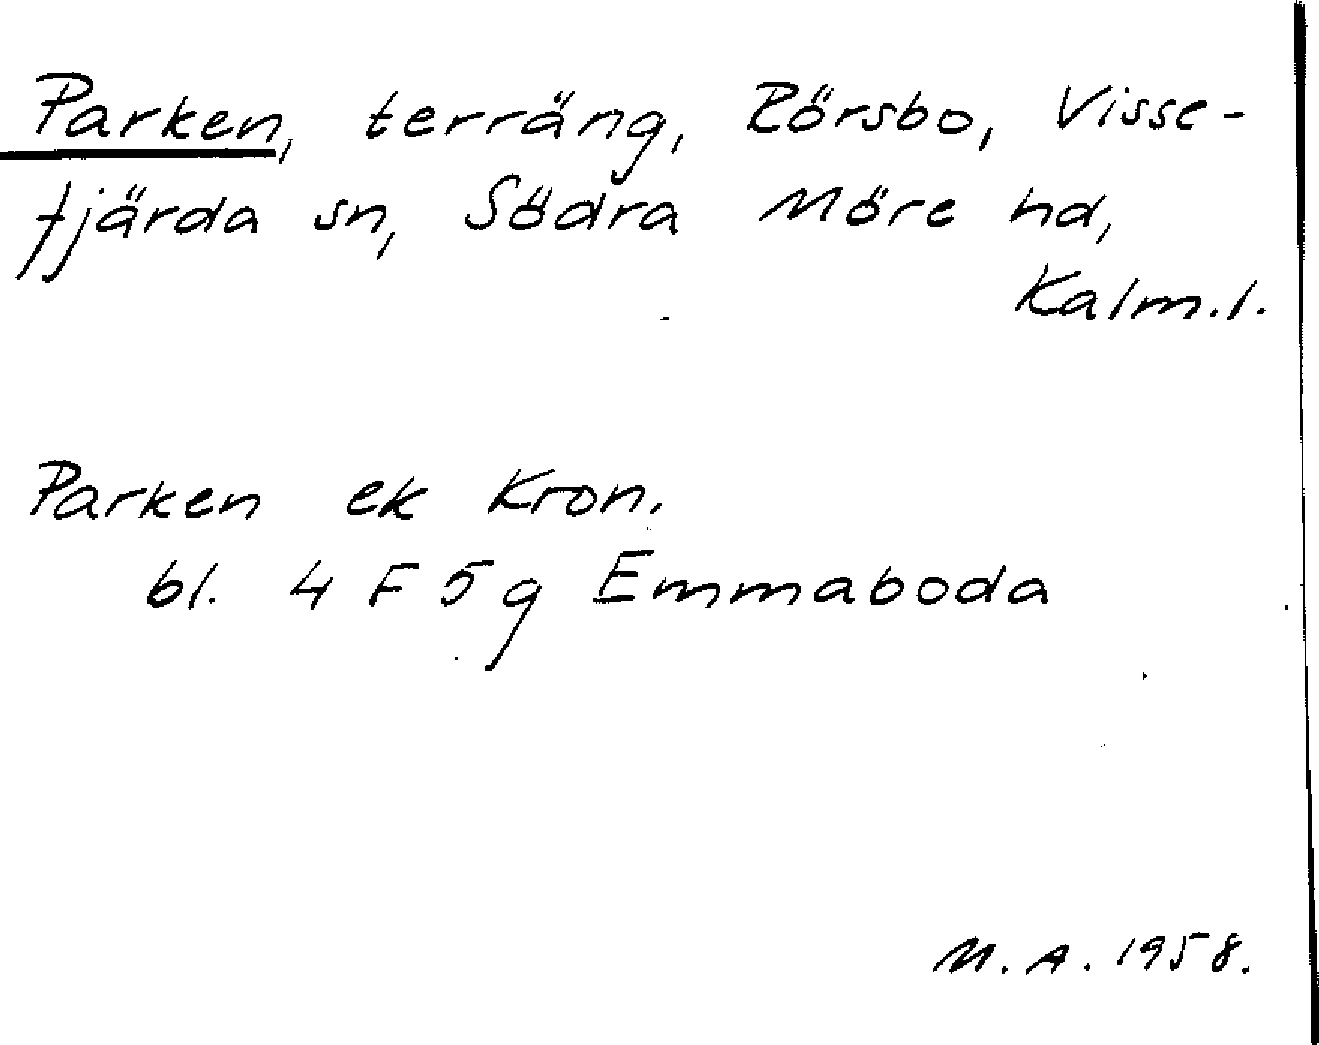 Parken, terräng, Rörsbo, Visse-
fjärda sn, Södra Möre hd,
Kalm.l.
Parken ek Kron.
bl. 4 F 5 g Emmaboda
M.A. 1958.